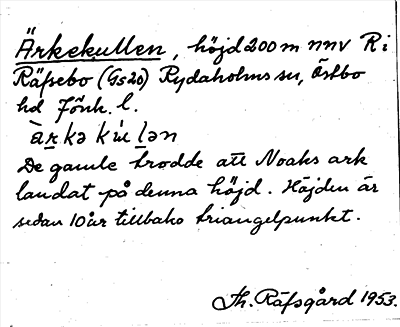 Ärkekullen, höjd 200 m nnv Ri
Räfsebo (Gs20) Rydaholms sn, Östbo
hd Jönk. l.
àrkəkúlən
De gamle trodde att Noaks ark
landat på denna höjd. Höjden är
sedan 10 år tillbaka triangelpunkt.
Th. Räfsgård 1953.